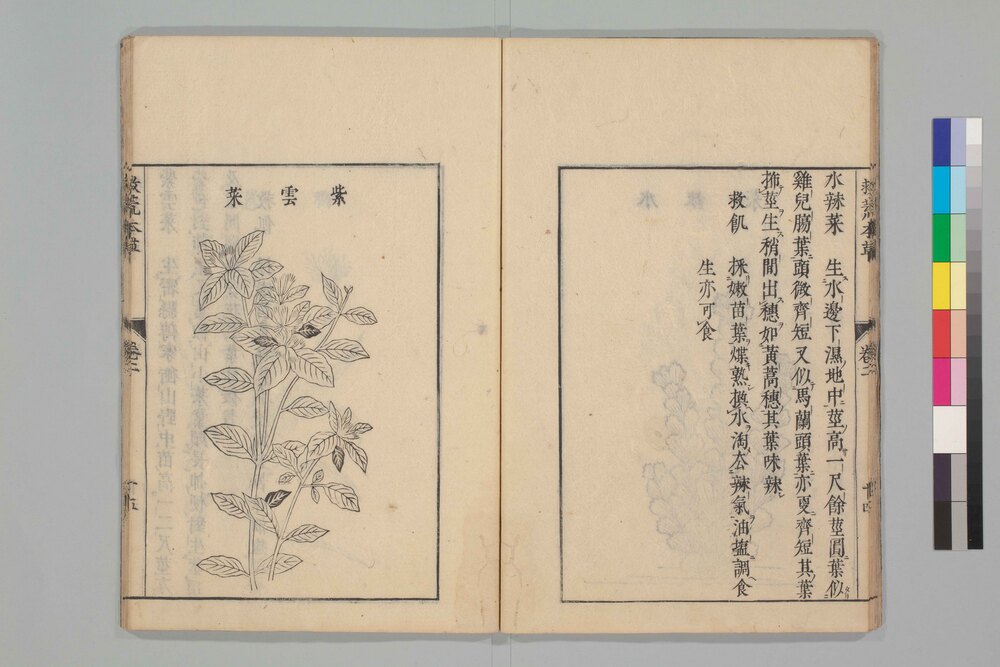 水辣菜　生水邊下濕地中莖高一尺餘莖圓葉似
雞兒膓葉頭微齊短又似馬蘭頭葉亦更齊短其葉
抪莖生稍間出穗如黃蒿穗其葉味辣
救飢　採嫩苗葉煠熟換水淘去辣氣油塩調食
生亦可食
救荒本草
卷二
十四
紫雲菜
救荒本草
卷二
十五